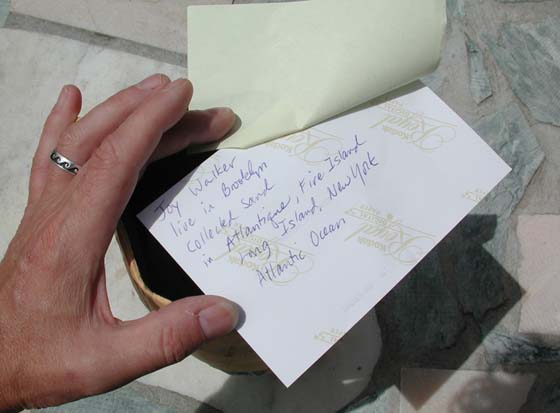 Joy Walker
live in Brooklyn
collected sand
in Atlantique, Fire Island
Long Island, New York
Atlantic Ocean.
Kodak
Royal
Kodak
Royal